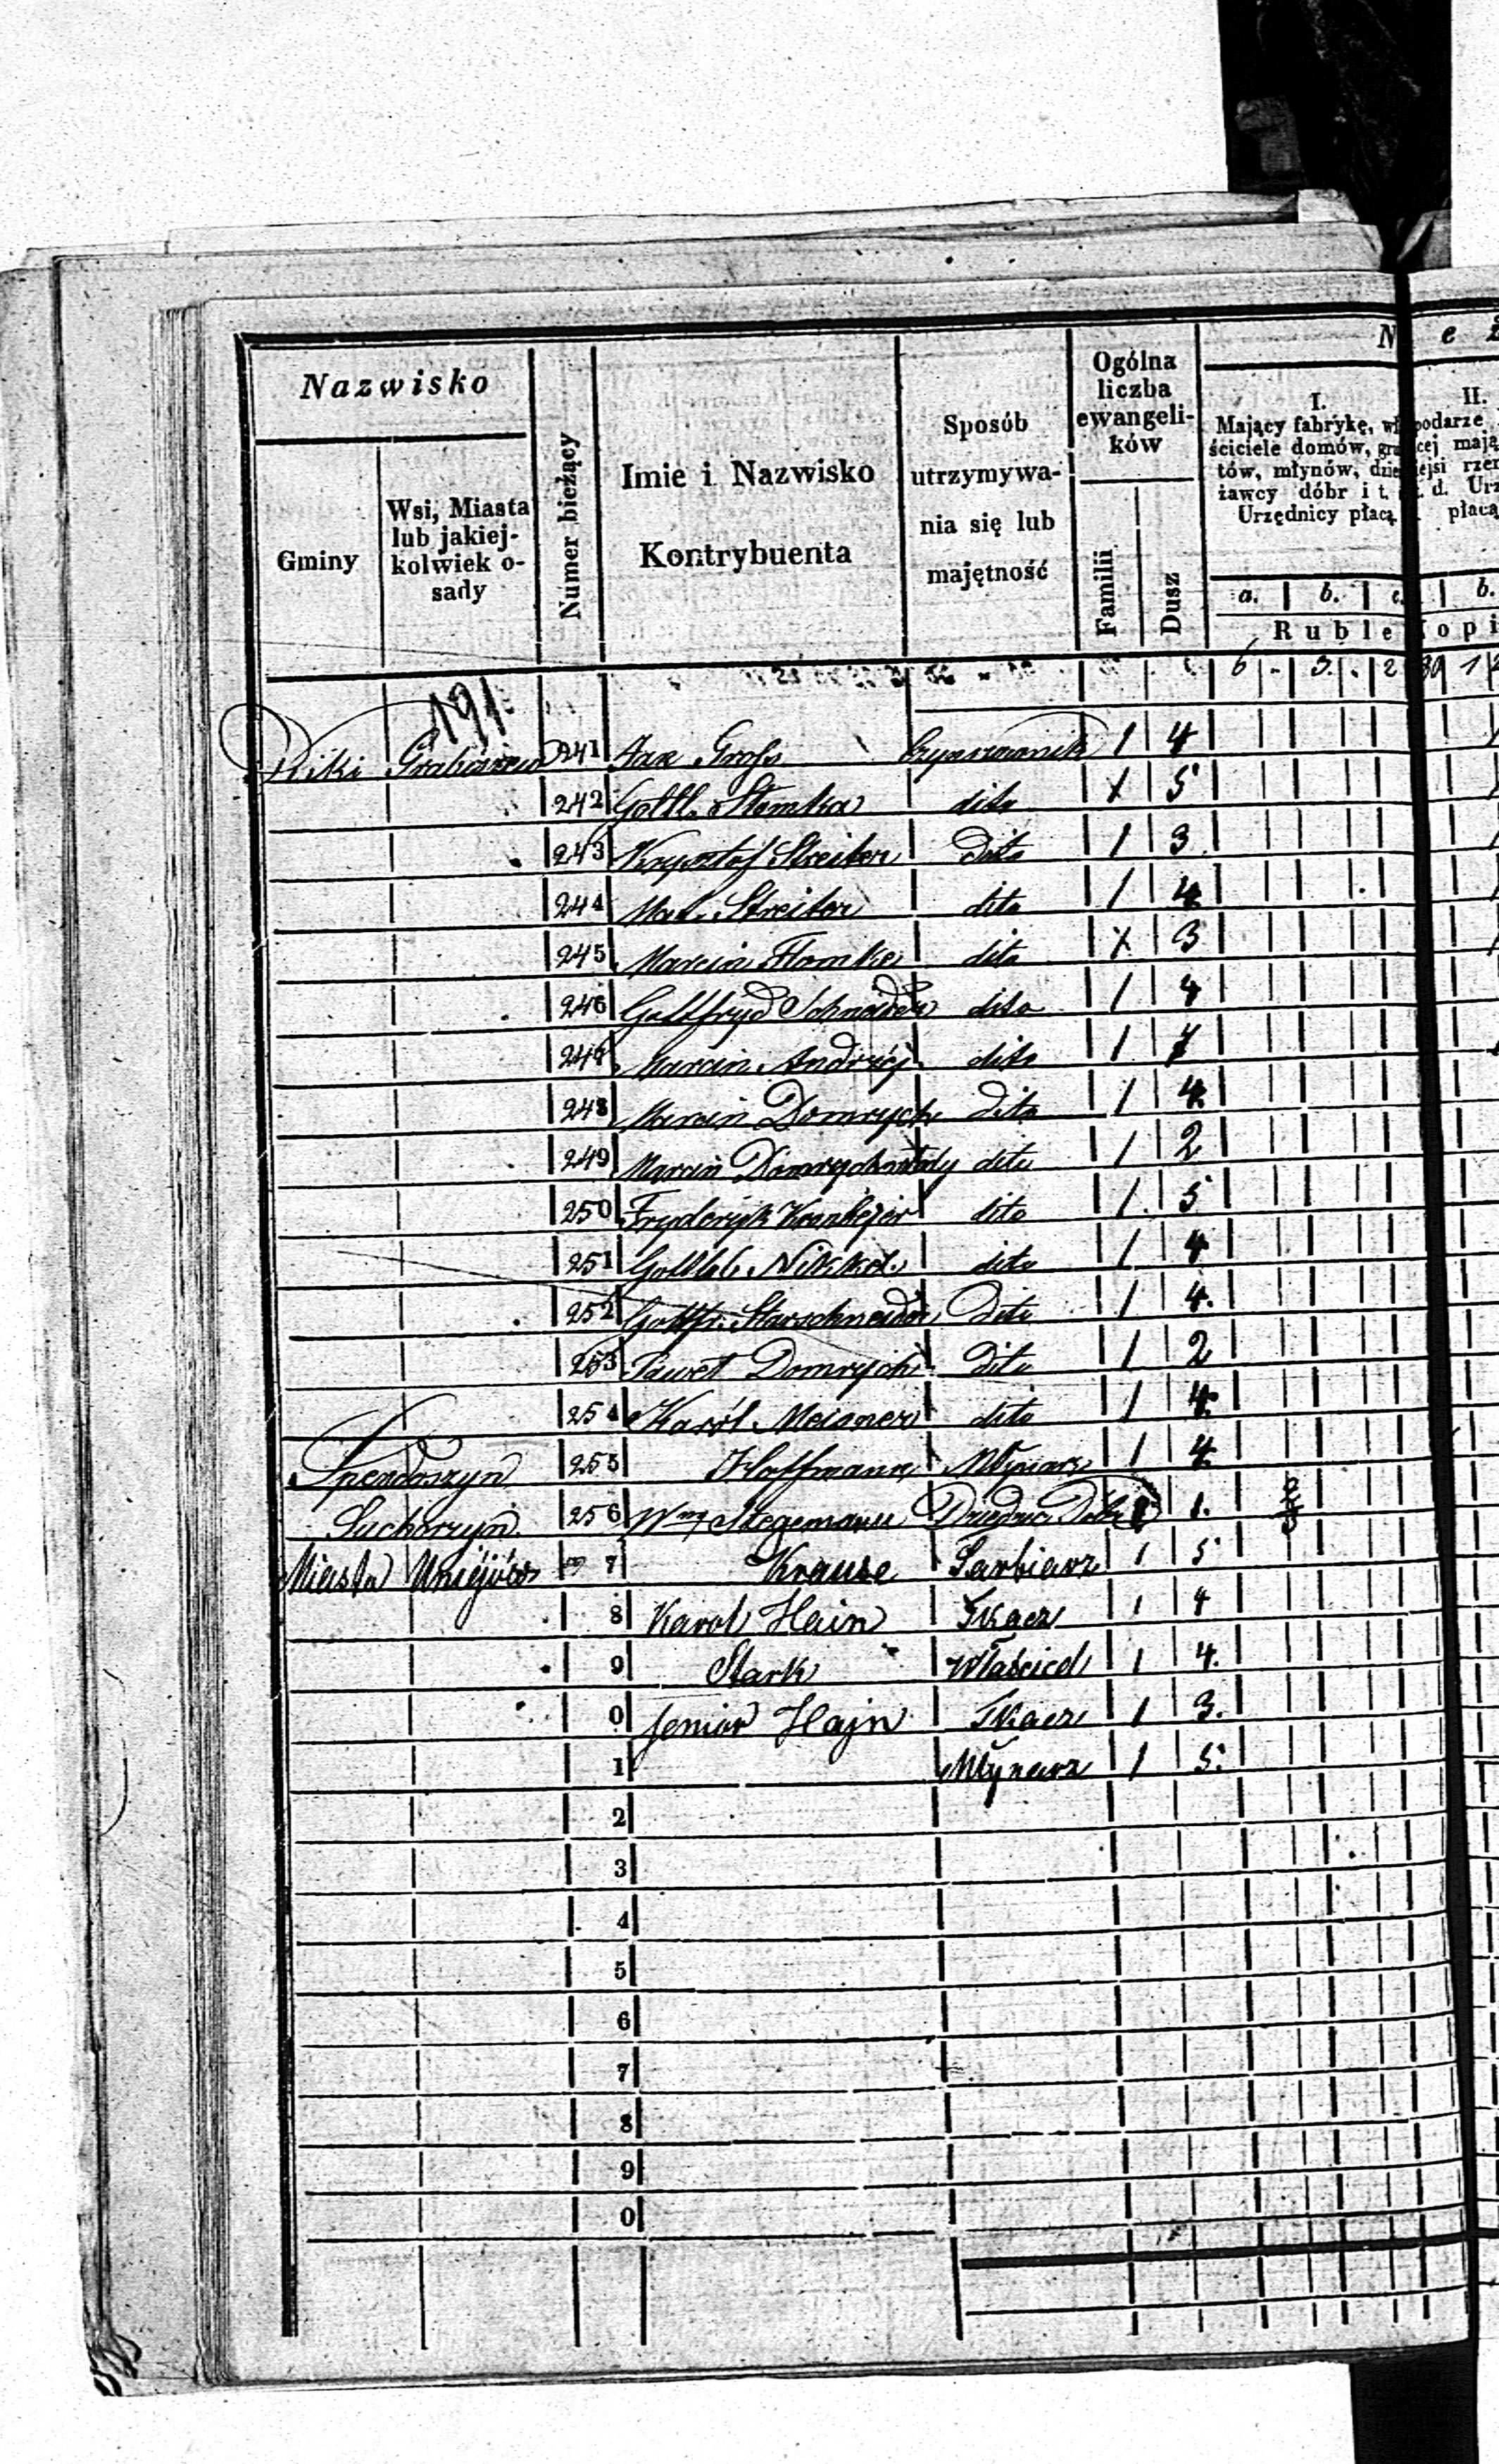 Nazwisko
Gminy
Wsi, Miasta
lub jakiej-
kolwiek o-
sady
Numer bieżący
Imie i Nazwisko
Kontrybuenta
Sposób
utrzymywa-
nia się lub
majętność
Ogólna
liczba
ewangeli-
ków
Familii
Dusz
N e ż
I.
Mający fabrykę, wł
ściciele domów, gru
tów, młynów, dzie
żawcy dóbr i t.
Urzędnicy płacą
II.
podarze
cej mają
ejsi rze
d. Urz
płacą
a. b. c. b.
Ruble Kopi
6 - 3. . 2 30 1
191.
241 Jan Gross Czynszownik 1 4
242 Gottl. Slomka dito 1 5
243 Krysztof Streiter Dito 1 3
244 Mat. Streiter dito 1 4
245 Marcin Flomke dito 1 3
246 Gottfryd Schneider dito 1 4
247 Marcin Andrzej dito 1 7
248 Marcin Domrych Dito 1 4.
249 Marcin Domrych młody dito 1 2
250 Fryderyk dito 1. 5
251 Gottlib dito 1 4
252 Gottfr. Starschneider Dito 1 4.
253 Paweł Domrych Dito 1 2
254 Karól Meisner dito 1 4.
Spendoszyn 255 Hoffmann Młynarz 1 4
256 Wm Stegemann Dziedzic Dóbr 1 1.
Miasta Uniejów 7 Krause Garbiarz 1 5
8 Karol Hain Tkacz 1 4
9 Stark Właściciel 1 4.
0 Jenior Hajn Tkacz 1 3.
1 Młynarz 1 5.
2
3
4
5
6
7
8
9
0